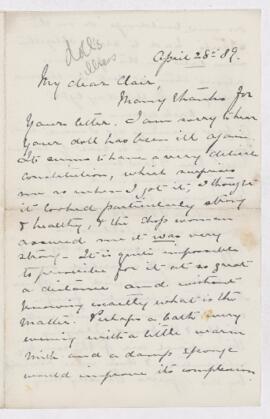 doll's
illness
April 28th 89.
My dear Clair,
Many thanks for
your letter. I am sorry to hear
your doll has been ill again
Its seems to have a very delicate
constitution, which surprises
me as when I got it, I thought
it looked particularly strong
& healthy, & the shop woman
assured me it was very
strong - It is quite impossible
to prescribe for it at so great
a distance and without
knowing exactly what is the
matter. Perhaps a bath every
evening with a little warm
milk and a damp sponge
would improve its complexion